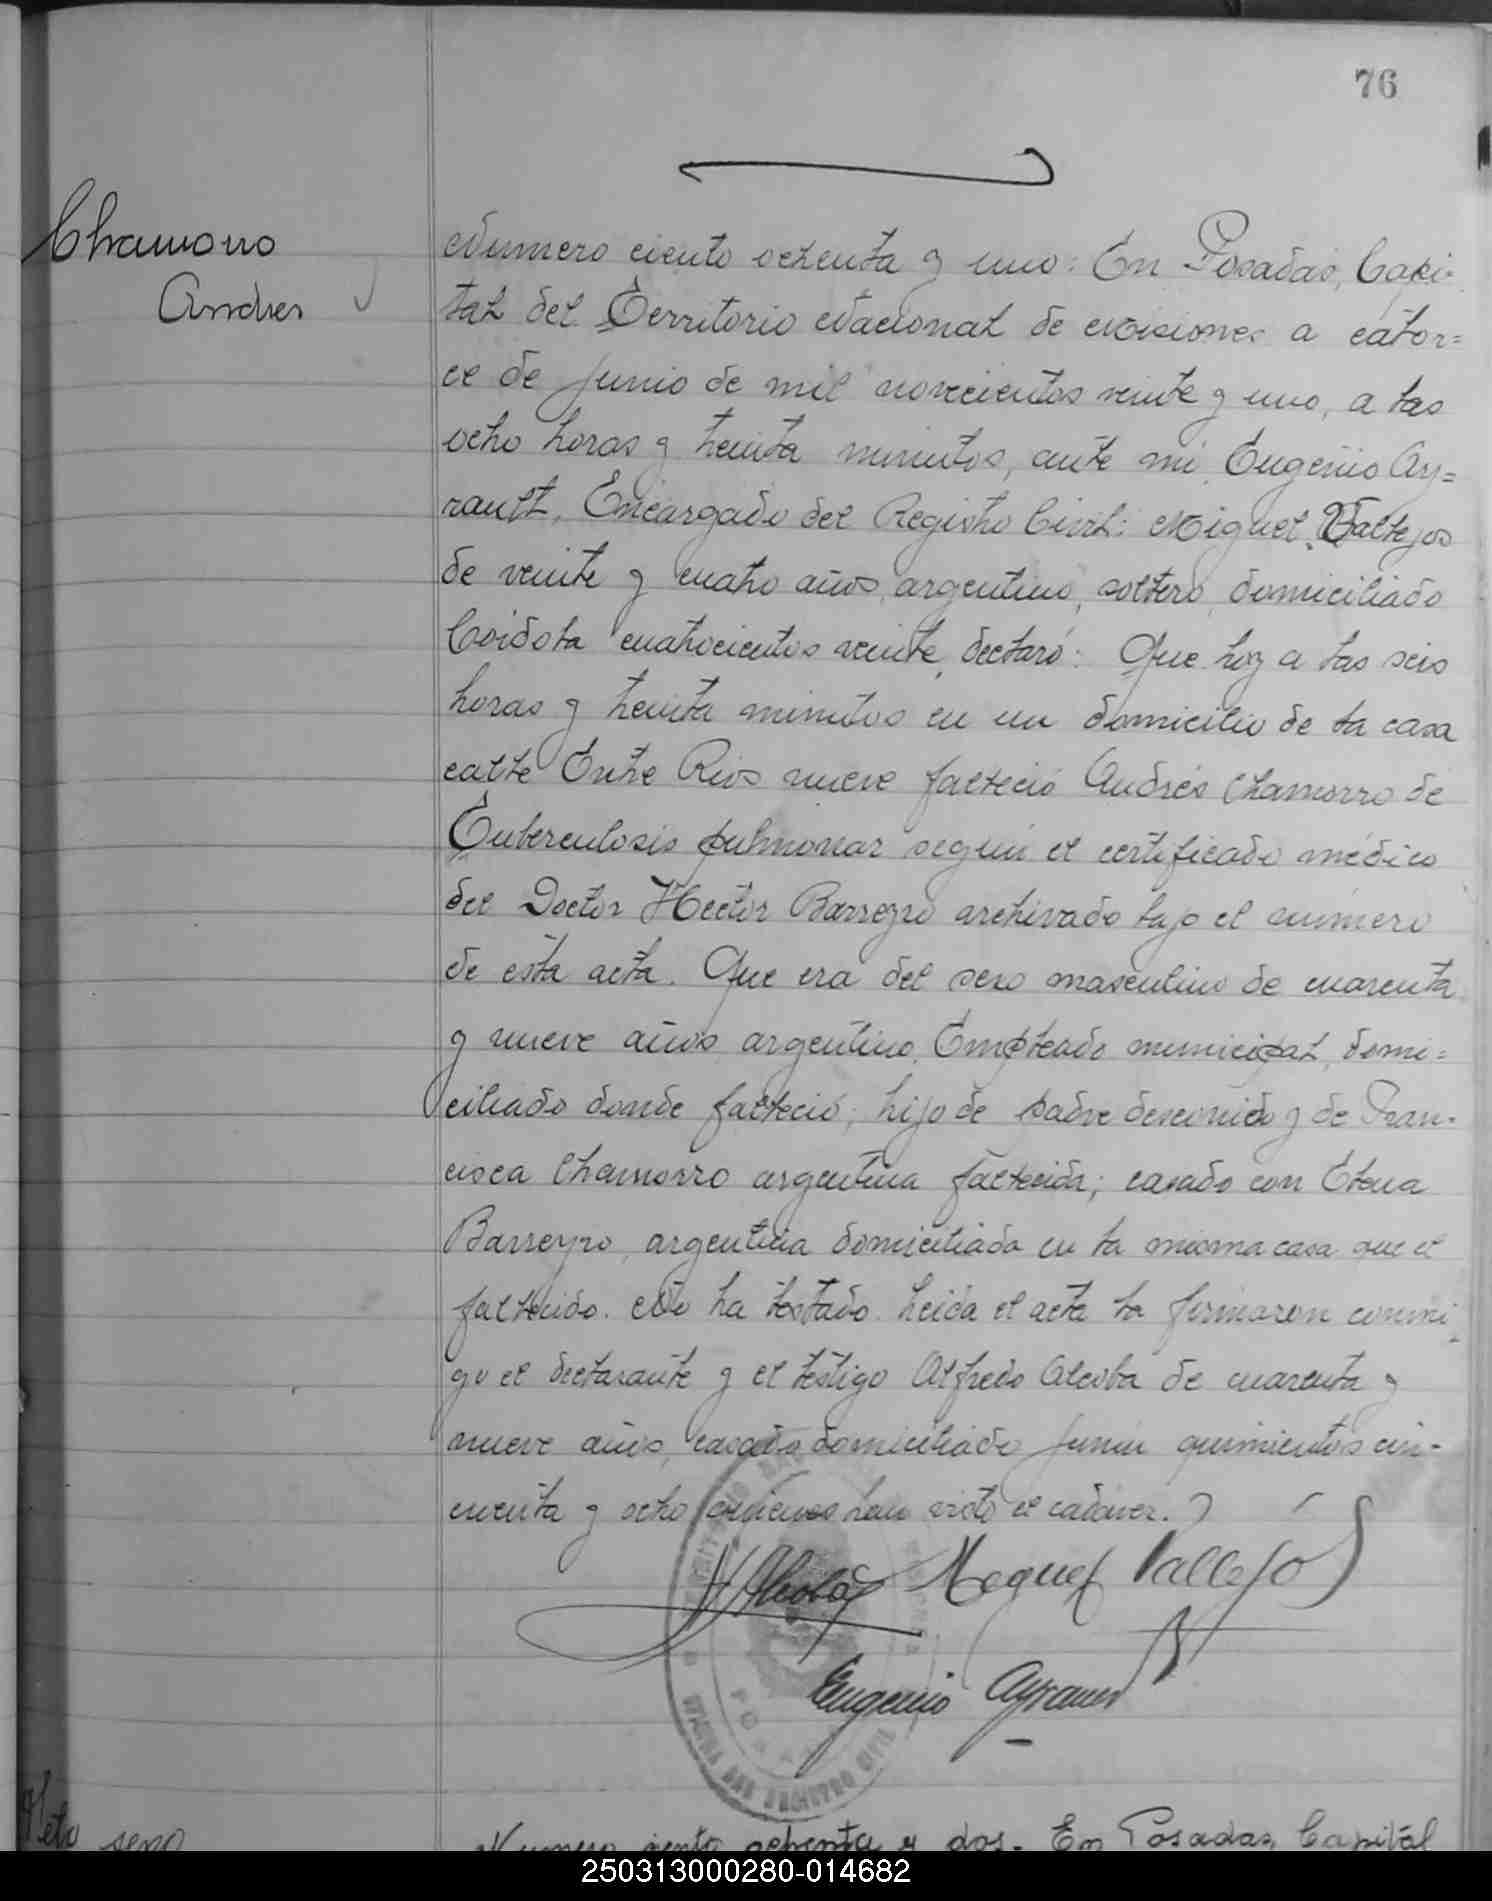 76
Chamorro
Andres
Numero ciento ochenta y uno: En Posadas, Capi-
tal del Territorio Nacional de Misiones a cator=
ce de Junio de mil novecientos veinte y uno, a las
ocho horas y treinta minutos, ante mi, Eugenio Ay=
rault, Encargado del Registro Civil: Miguel Vallejos
de veinte y cuatro años, argentino, soltero, domiciliado
Córdoba cuatrocientos veinte, declaró: Que hoy a las seis
horas y treinta minutos en un domicilio de la casa
calle Entre Rios nueve falleció Andrés Chamorro de
Tuberculosis pulmonar según el certificado médico
del Doctor Hector Barreyro archivado bajo el número
de esta acta. Que era del sexo masculino de cuarenta
y nueve años, argentino, Empleado municipal, domi=
ciliado donde falleció; hijo de padre desconido y de Fran-
cisca Chamorro argentina fallecida; casado con Elena
Barreyro, argentina domiciliada en la misma casa que el
fallecido. No ha testado. Leida el acta la firmaron conmi-
go el declarante y el testigo Alfredo Alcoba de cuarenta y
nueve años, casado, domiciliado Junin quinientos cin-
cuenta y ocho quienes han visto el cadáver.
A Alcoba Miguel Vallejos
Eugenio Ayrault
Neto seno
Numero ciento ochenta y dos. En Posadas, Capital
250313000280-014682